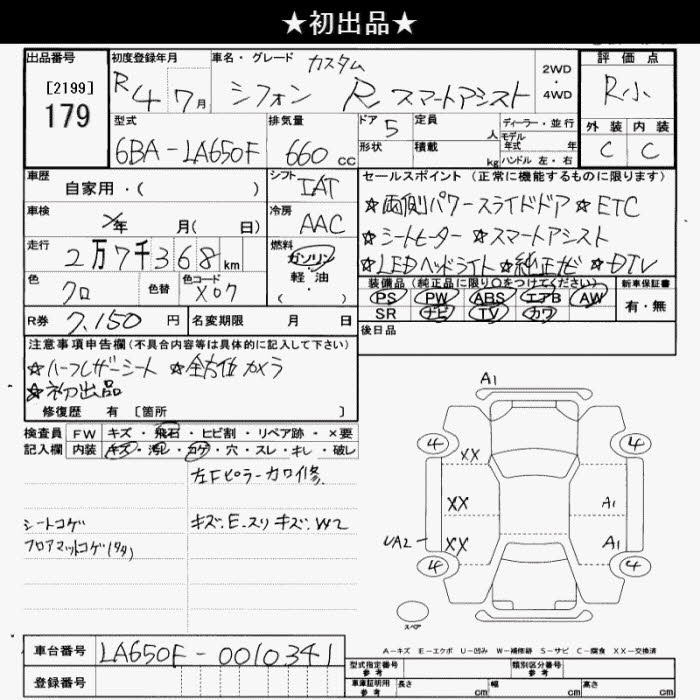 ★初出品★
出品番号 初度登録年月 車名・グレード カスタム 評価点
[2199] 179 R 4 7月 シフォン R スマートアシスト 2WD・4WD R小
型式 排気量 ドア 5 定員 人 ディーラー・並行 外装 内装
6BA-LA650F 660cc 形状 積載 kg モデル年式 年 ハンドル 左・右 C C
車歴 自家用・( ) シフト IAT セールスポイント (正常に機能するものに限ります)
車検 年 月( 日) 冷房 AAC ☆両側パワースライドドア ☆ETC
走行 2万7千368km 燃料 ガソリン 軽油 ( ) ☆シートヒーター ☆スマートアシスト
☆LEDヘッドライト ☆純正ナビ ☆DTV
色 クロ 色替 色コード X07 装備品(純正品に限り○をつけてください) 新車保証書
PS PW ABS エアB AW 有・無
SR ナビ TV カワ
R券 7,150円 名変期限 月 日 後日品
注意事項申告欄(不具合内容等は具体的に記入して下さい)
☆ハーフレザーシート ☆全方位カメラ
☆初出品
修復歴 有 [箇所 ]
検査員 FW キズ・飛石・ヒビ割・リペア跡・×要
記入欄 内装 キズ・汚レ・コゲ・穴・スレ・キレ・破レ
左Fピラーカワイ修.
シートコゲ キズ.E.スリキズ.W2
フロアマットコゲ(タタ)
A1
4 4
XX
XX A1
UA2 XX A1
4 4
スペア
A-キズ E-エクボ U-凹み W-補修跡 S-サビ C-腐食 XX-交換済
車台番号 LA650F-0010341
登録番号
型式指定番号 参考 類別区分番号 参考
車庫証明用 参考 長さ cm 幅 cm 高さ cm